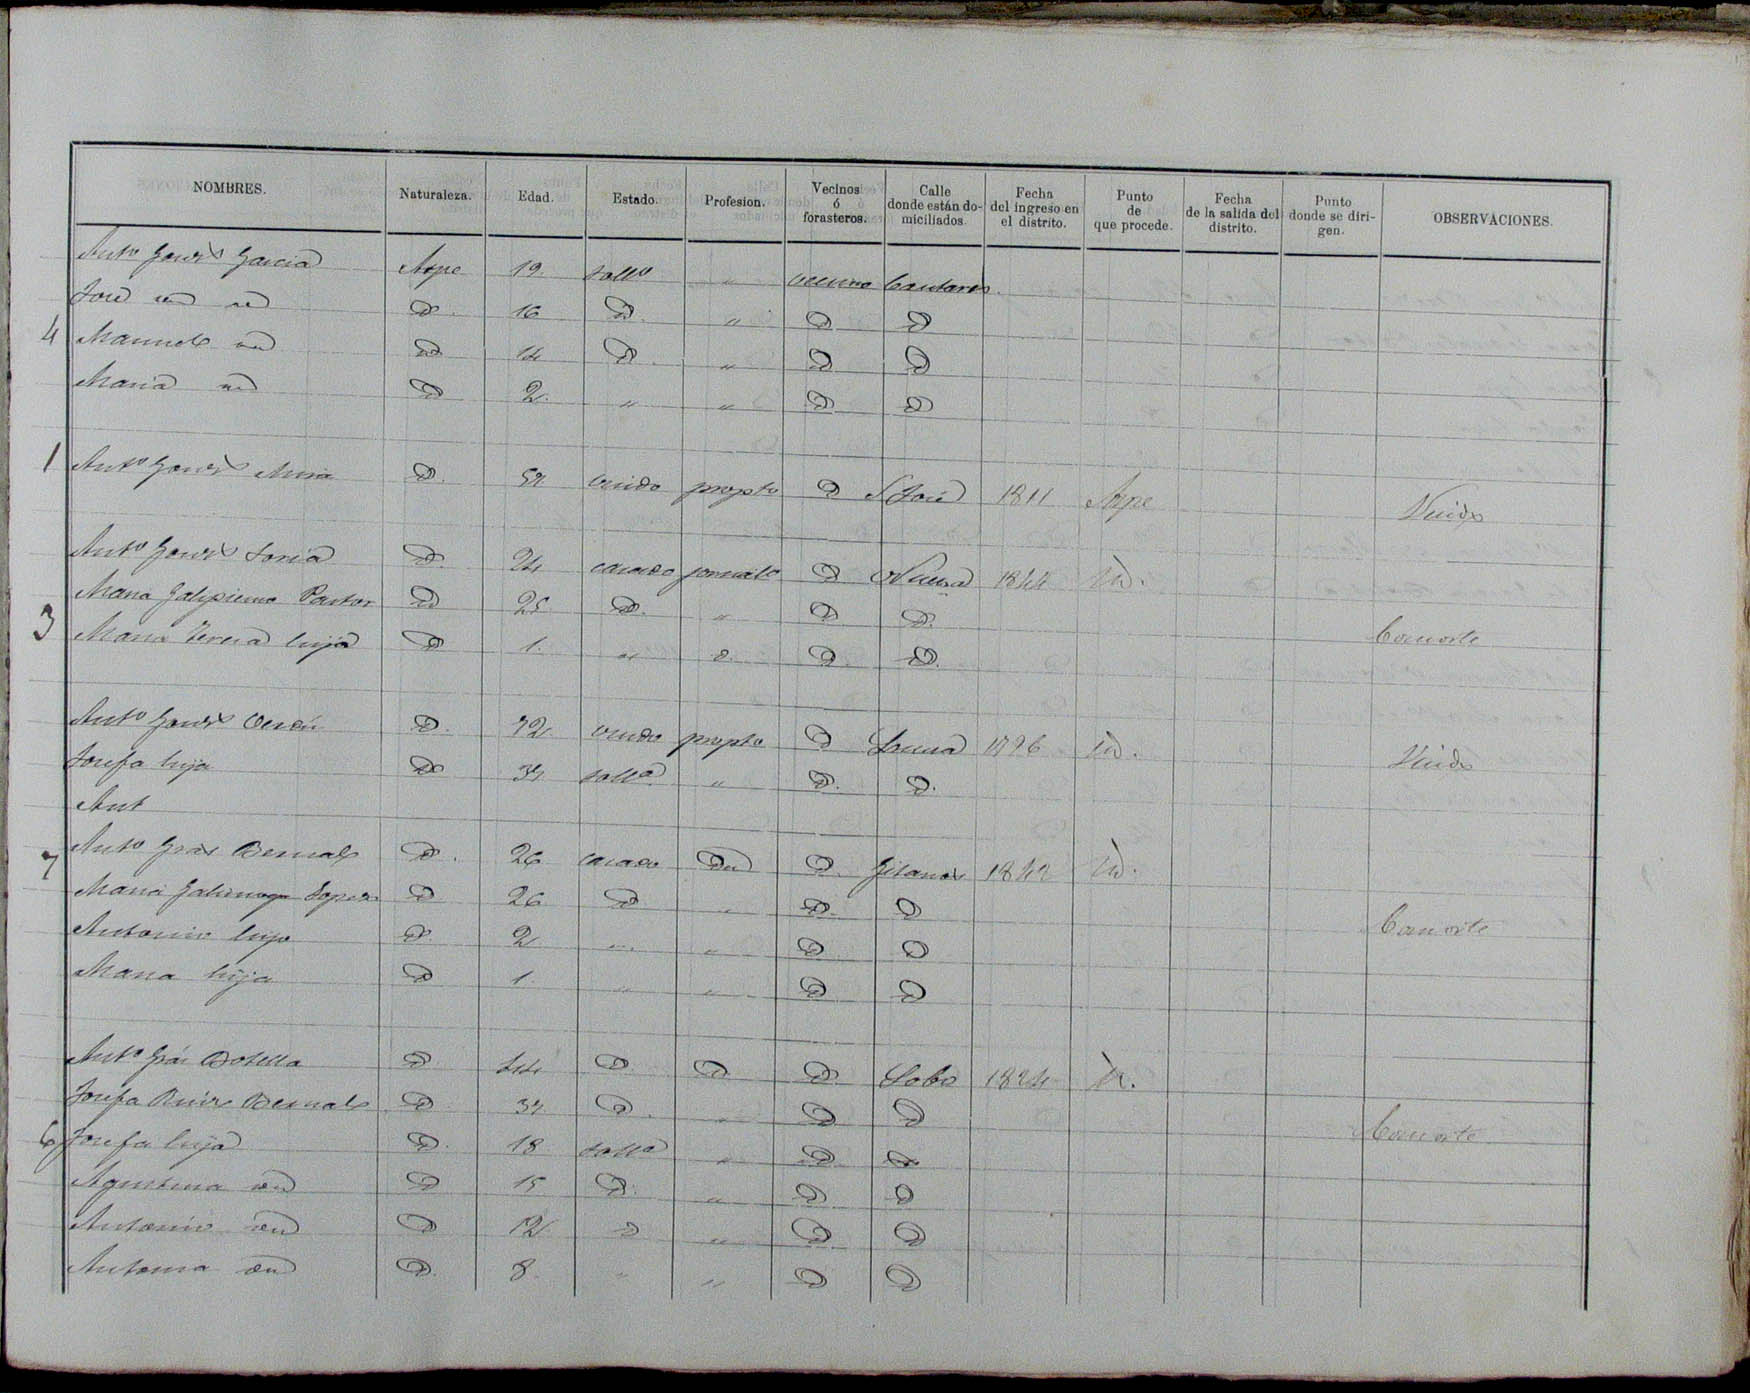 NOMBRES. Naturaleza. Edad. Estado. Profesion. Vecinos ó forasteros. Calle donde están domiciliados. Fecha del ingreso en el distrito. Punto de que procede. Fecha de la salida del distrito. Punto donde se dirigen. OBSERVACIONES.
Antº Gonzs Garcia Aspe 19 soltº " vecino Cantaros
José id id D. 16 D. " D D
4 Manuel id D 14 D. " D D
Maria id D 2 " " D D
1 Antº Gonzs Mira D. 52 viudo propto D S José 1811 Aspe Viudo
Antº Gonzs Soria D. 24 casado D Nueva 1844 id.
Maria Galipienso Pastor D 25 D. " D D. Consorte
3 Maria Teresa hija D 1 " D. D.
Antº Gonzs Cerdán D. 72 viudo propto D 1796 id. Viudo
Josefa hija D 37 soltª " D. D.
Ant
7 Antº Grás Bernal D. 26 casado D. Gitanos 1842 id.
Maria D 26 D " D. D Consorte
Antonio hijo D. 2 " " D D
Maria hija D 1 " " D D
Antº Grás Botella D. 44 D D D. Lobo 1824 id.
Josefa Ruiz Bernal D. 37 D. " D D Consorte
6 Josefa hija D. 18 soltª " D D
Agustina id D 15 D. " D D
Antonio id D 12 D " D D
Antonia id D. 8 " " D D